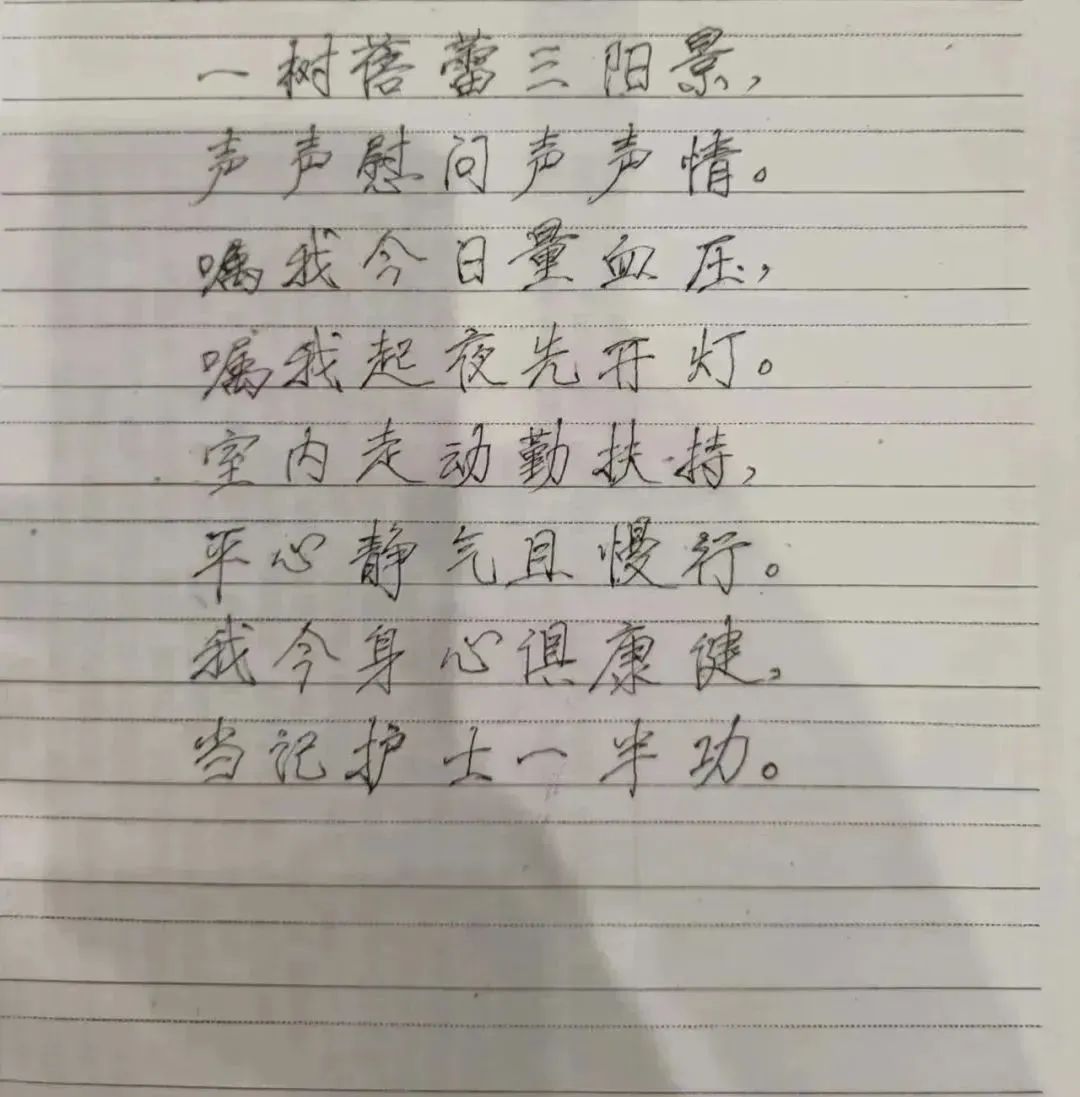 一树蓓蕾三阳景,
声声慰问声声情。
嘱我今日量血压,
嘱我起夜先开灯。
室内走动勤扶持,
平心静气且慢行。
我今身心俱康健,
当记护士一半功。